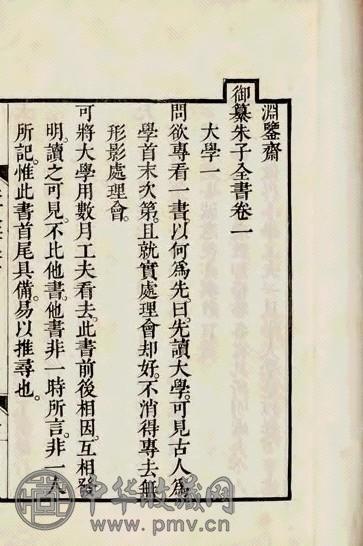 淵鑒齋
御纂朱子全書卷一
大學一
問欲專看一書以何為先曰先讀大學可見古人為
學首末次第且就實處理會却好不消得專去無
形影處理會
可將大學用數月工夫看去此書前後相因互相發
明讀之可見不比他書他書非一時所言非一人
所記惟此書首尾具備易以推尋也
中华收藏网
www.pmv.cn